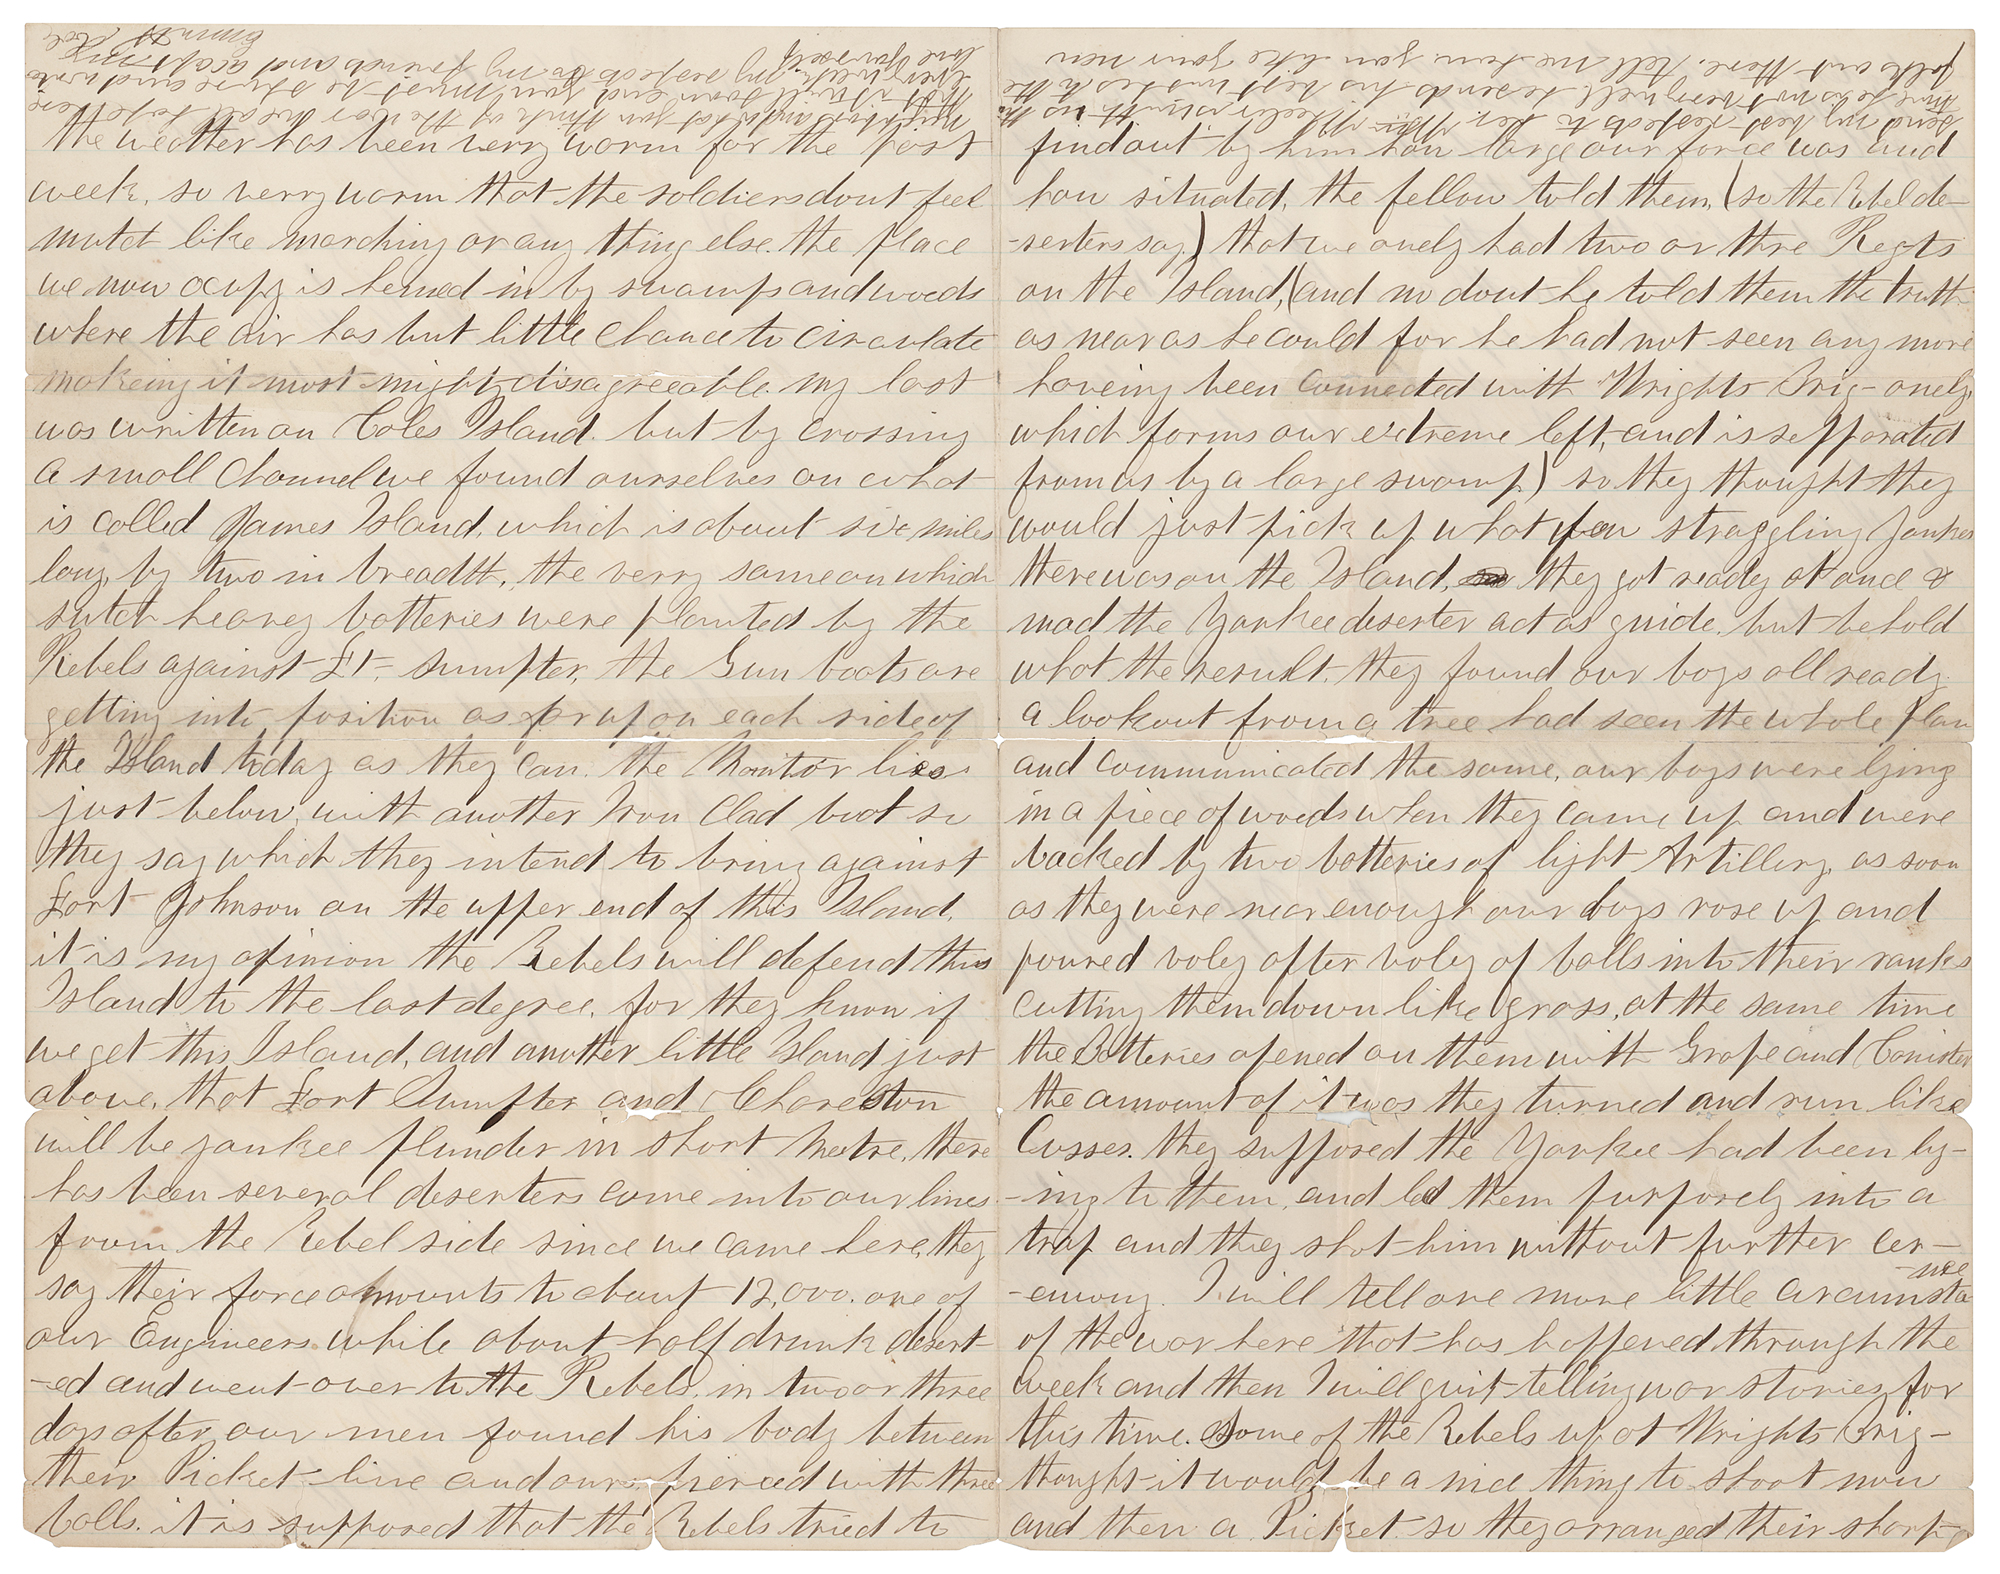 the weather has been verry worm for the past
week, so verry worm that the soldiers dout feel
mutch like marching or any thing else. the place
we now ocupy is hemed in by swamps and woods
where the air has but little chance to circulate
makeing it most mighty disagreeable. my last
was written on Coles Island. but by crossing
a small channel we found ourselves on what
is called James Island, which is about six miles
long, by two in breadth, the verry same on which
sutch heavey batteries were planted by the
Rebels against Ft. Sumpter, the Gun boats are
getting into position as far up on each side of
the Island today as they can. the Monitor lies
just below, with another Iron Clad boat so
they say which they intend to bring against
Fort Johnson on the upper end of this Island.
it is my opinion the Rebels will defend this
Island to the last degree, for they know if
we get this Island, and another little Island just
above, that Fort Sumpter and Charleston
will be yankee plunder in short meetre, there
has been several deserters come into our lines
from the Rebel side since we came here, they
say their force amounts to about 12,000. one of
our Engineers while about half drunk desert-
-ed and went over to the Rebels, in two or three
days after our men found his body between
their Picket line and ours pierced with three
balls. it is supposed that the Rebels tried to
find out by him how large our force was and
how situated, the fellow told them, (so the Rebel de-
-serters say) that we onely had two or thre Regts
on the Island, (and no dout he told them the truth
as near as he could for he had not seen any more
haveing been connected with Wrights Brig- onely,
which forms our extreme left, and is sepporated
from us by a large swamp) so they thought they
would just pick up what few straggling Yankees
there was on the Island, they got ready at once &
mad the Yankee deserter act as guide. but behold
what the result. they found our boys all ready
a lookout from a tree had seen the whole plan
and communicated the same, our boys were lying
in a piece of woods when they came up and were
backed by two batteries of light Artillery, as soon
as they were near enough our boys rose up and
poured voley after voley of balls into their ranks
cutting them down like grass, at the same time
the Batteries opened on them with Grape and Canister
the amount of it was they turned and run like
Cusses. they supposed the Yankee had been ly-
-ing to them, and led them purposely into a
trap and they shot him without further cer-
-emony. I will tell one more little circumsta
-nce
of the war here that has happened through the
week and then I will quit telling war stories for
this time. Some of the Rebels up at Wrights Brig-
thought it would be a nice thing to shoot now
and then a Picket so they arranged their sharp-
send my best respects to
time he is not very well he sends his best wishes to the
folks out there. tell me how you like your new
neighbors and what you think of the war
I will
every week. my respects to my friends and accept my
love yourself